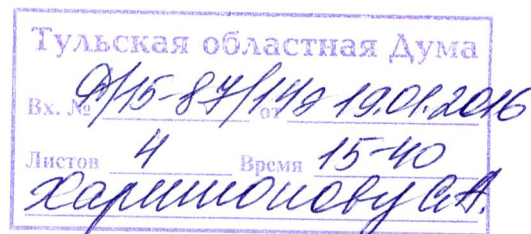 Тульская областная Дума
Вх. № Д/15-87/149 от 19.01.2016
Листов 4 Время 15-40
Харитонову С.А.